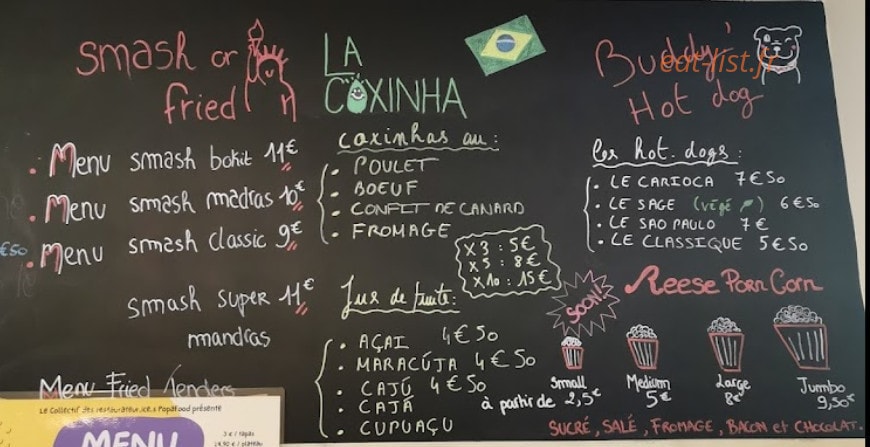 Smash or
fried
. Menu smash bokit 11€
. Menu smash madras 10€
€50 . Menu smash classic 9€
smash super 11€
mandras
Menu Fried Tenders
Le Collectif des restaurateur.ice.s Popafood présente
MENU
3 € / tapas
14,90 € / plateau
LA
COXINHA
coxinhas au :
. POULET
. BOEUF
. CONFIT DE CANARD
. FROMAGE
X 3 : 5€
X 5 : 8€
X 10 : 15€
Jus de fruits :
. AÇAI 4€50
. MARACÚJA 4€50
. CAJÚ 4€50
. CAJÁ
. CUPUAÇU
Buddy's
Hot dog
eat-list.fr
les hot. dogs :
. LE CARIOCA 7€50
. LE SAGE (végé) 6€50
. LE SAO PAULO 7€
. LE CLASSIQUE 5€50
SOON!
Reese PORN CORN
Small Medium Large Jumbo
à partir de 2,5€ 5€ 8€ 9,50€
SUCRÉ, SALÉ, FROMAGE, BACON et CHOCOLAT.